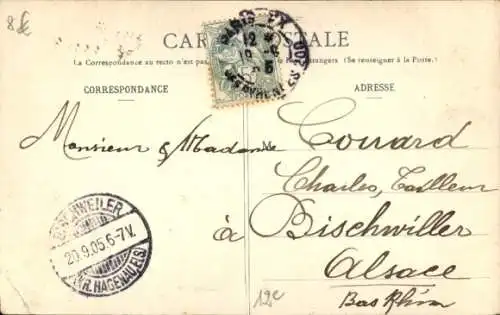 8€
CARTE POSTALE
La Correspondance au recto n'est pas
étrangers (Se renseigner à la Poste.)
CORRESPONDANCE
ADRESSE
PARIS
12
5
Monsieur & Madame Conrard
Charles, Tailleur
à Bischwiller
Alsace
Bas Rhin
BISCHWEILER
20.9.05.6-7V.
(KR. HAGENAU(ELS)
12€